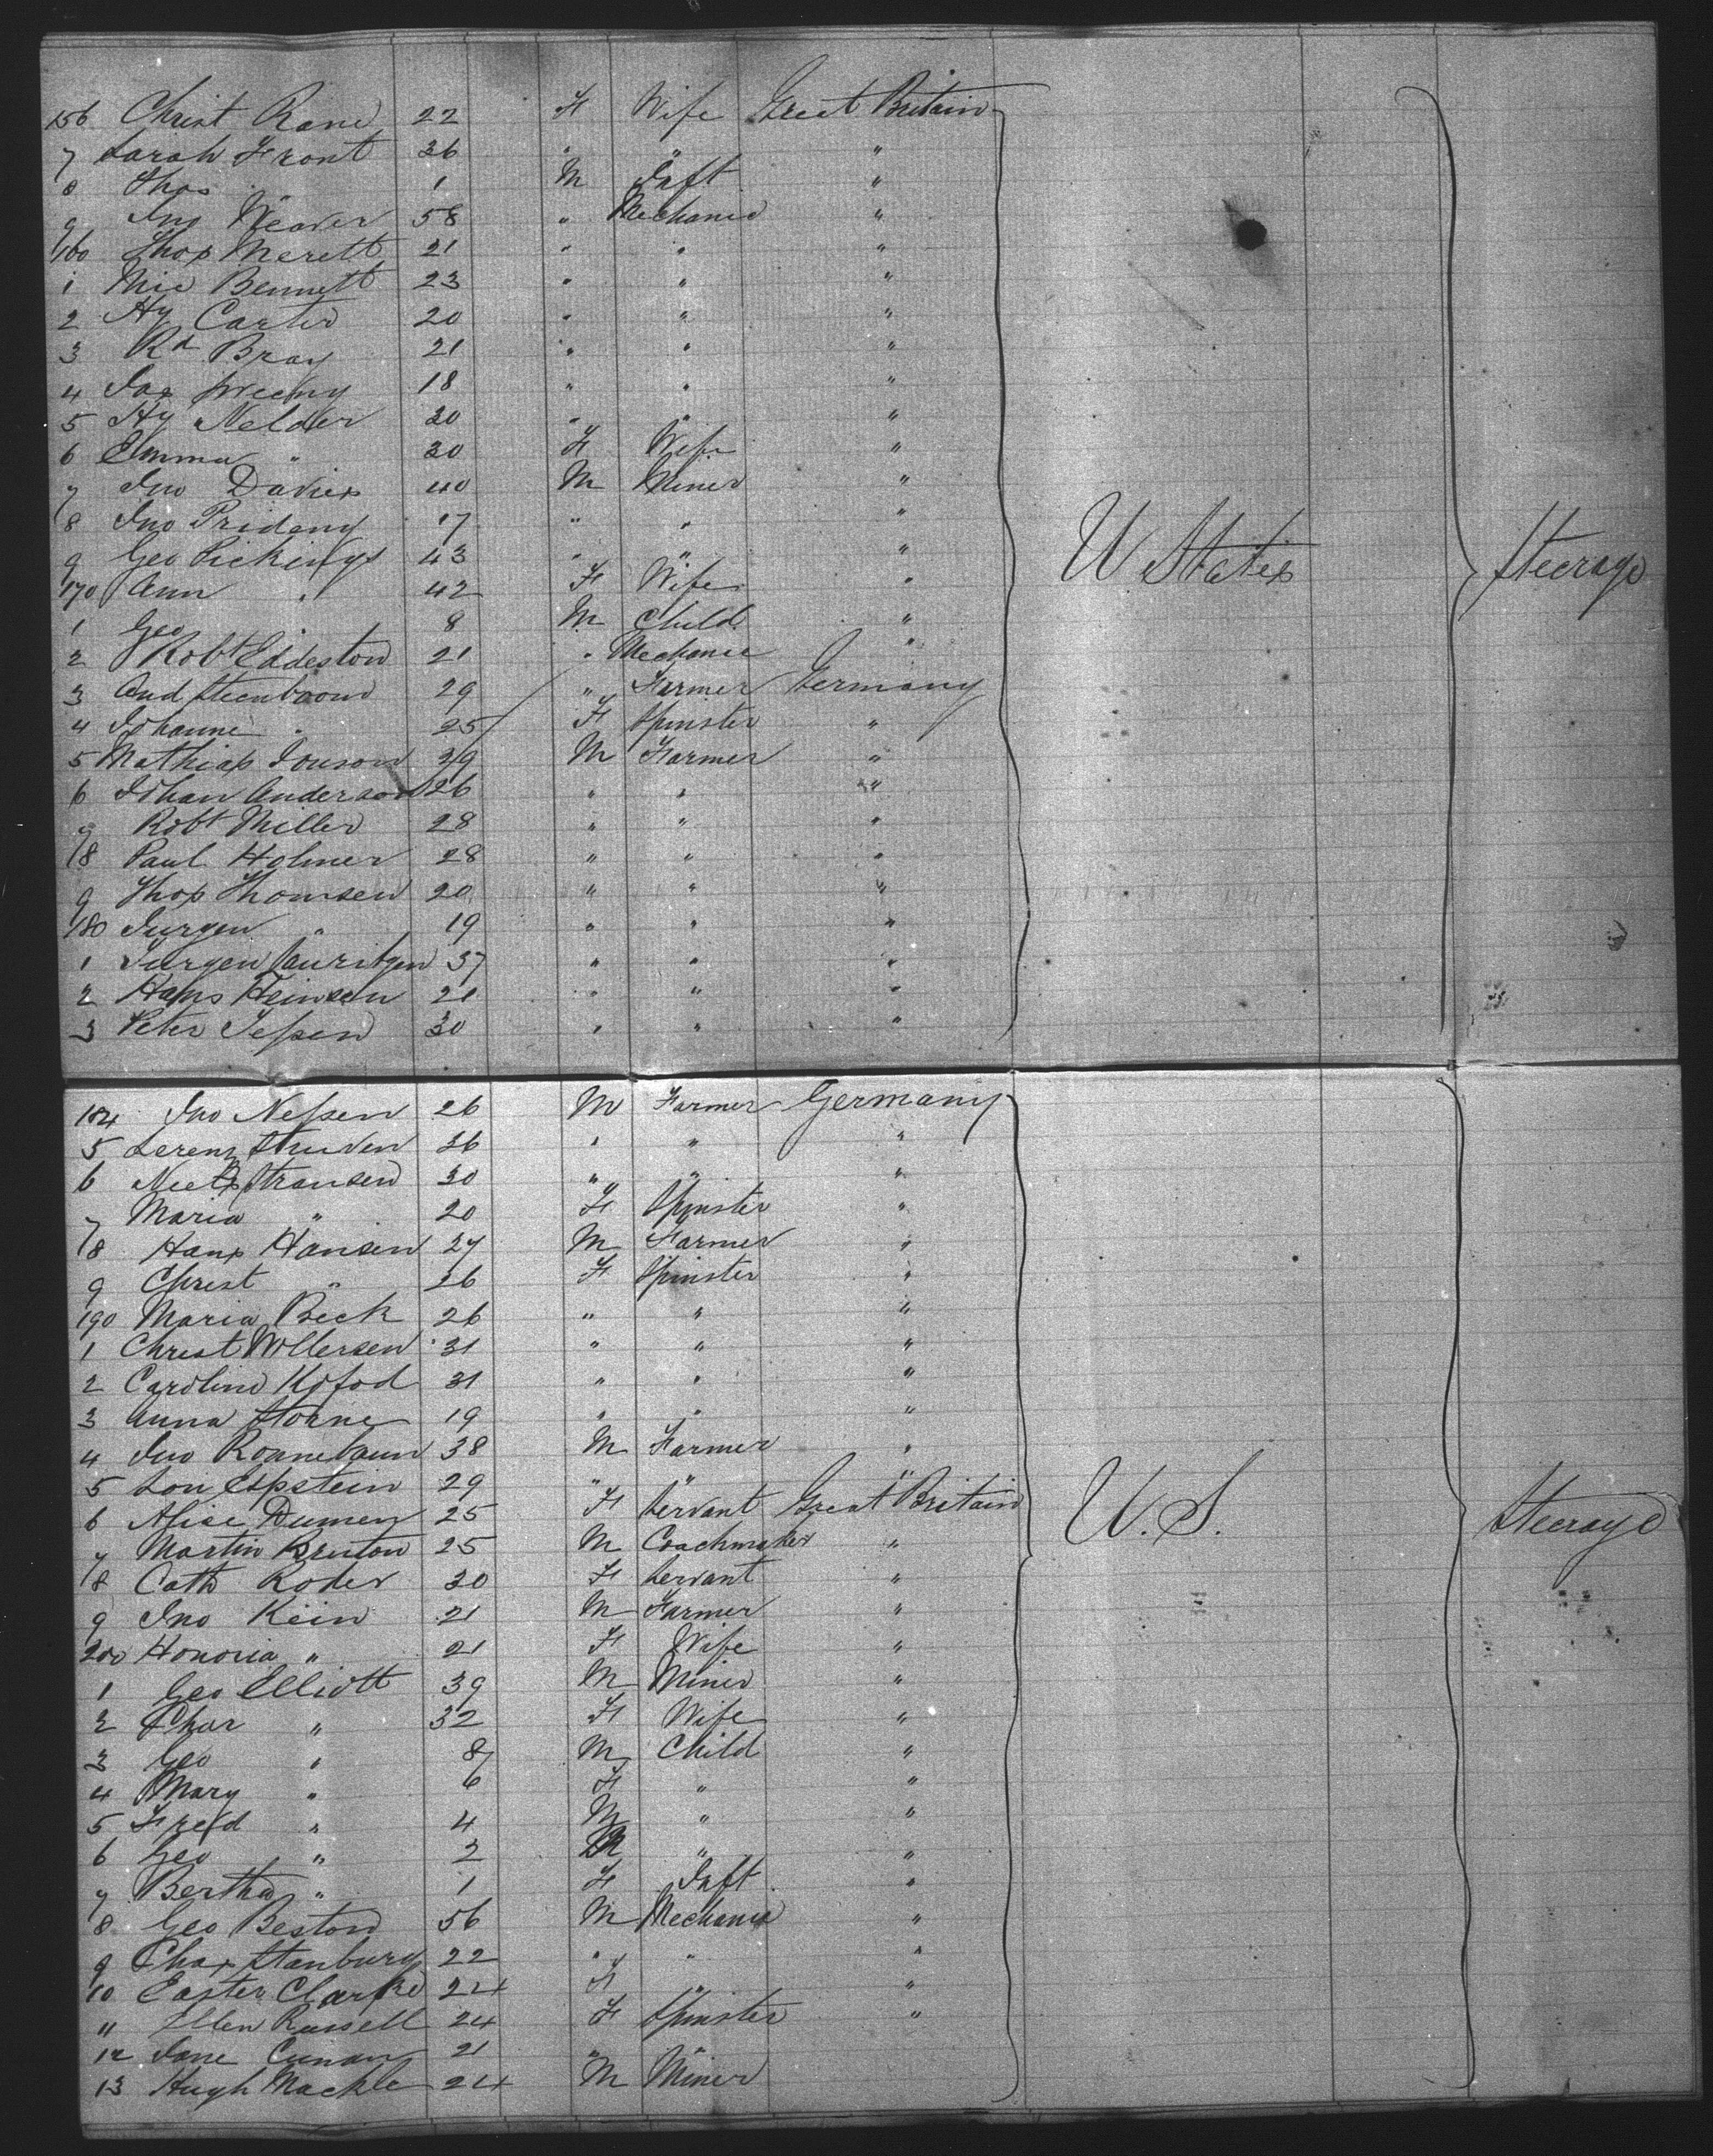 156 Christ Rane 22 F Wife Great Britain
7 Sarah Front 26 " " "
8 Thos " 1 M Inft "
9 Jno Weaver 58 " Mechanic "
160 Thos Merett 21 " " "
1 Mic Bennett 23 " " "
2 Hy Carter 20 " " "
3 Rd Bray 21 " " "
4 Jas 18 " " "
5 Hy Nelder 30 " " "
6 Emma " 30 F Wife "
7 Jno Davies 40 M Miner "
8 Jno Prideany 17 " " "
9 Geo Pickings 43 " " "
U States Steerage
170 Ann " 42 F Wife "
1 Geo " 8 M Child "
2 Robt Eddeston 21 " Mechanic "
3 And Steenboom 29 " Farmer Germany
4 Johanne " 25 F Spinster "
5 Mathias Jouson 29 M Farmer "
6 Johan Anderson 26 " " "
7 Robt Miller 28 " " "
8 Paul Holmer 28 " " "
9 Thos Thomsen 20 " " "
180 Jurgen " 19 " " "
1 Jurgen Lauritzen 37 " " "
2 Hans Heinsen 21 " " "
3 Peter Jessen 30 " " "
184 Jno Nessen 26 M Farmer Germany
5 Lorenz Struven 36 " " "
6 Neels Stransen 30 " " "
7 Maria " 20 F Spinster "
8 Hans Hansen 27 M Farmer "
9 Christ " 26 F Spinster "
190 Maria Beck 26 " " "
1 Christ Wollersen 31 " " "
2 Caroline Kofod 31 " " "
3 Anna Storne 19 " " "
4 Jno Ronnebaum 38 M Farmer "
5 Lou Epstein 29 " " "
6 Alice Dumen 25 F Servant Great Britain
U.S. Steerage
7 Martin Bruton 25 M Coachmaker "
8 Cath Roder 30 F Servant "
9 Jno Kein 21 M Farmer "
200 Honoria " 21 F Wife "
1 Geo Elliott 39 M Miner "
2 Char " 32 F Wife "
3 Geo " 8 M Child "
4 Mary " 6 F " "
5 Fred " 4 M " "
6 Geo " 2 M " "
7 Bertha " 1 F Inft "
8 Geo Beston 56 M Mechanic "
9 Chas Stanbury 22 " " "
10 Easter Clarke 24 F " "
11 Ellen Russell 24 F Spinster "
12 Jane Cunan 21 " "
13 Hugh Mackle 24 M Miner